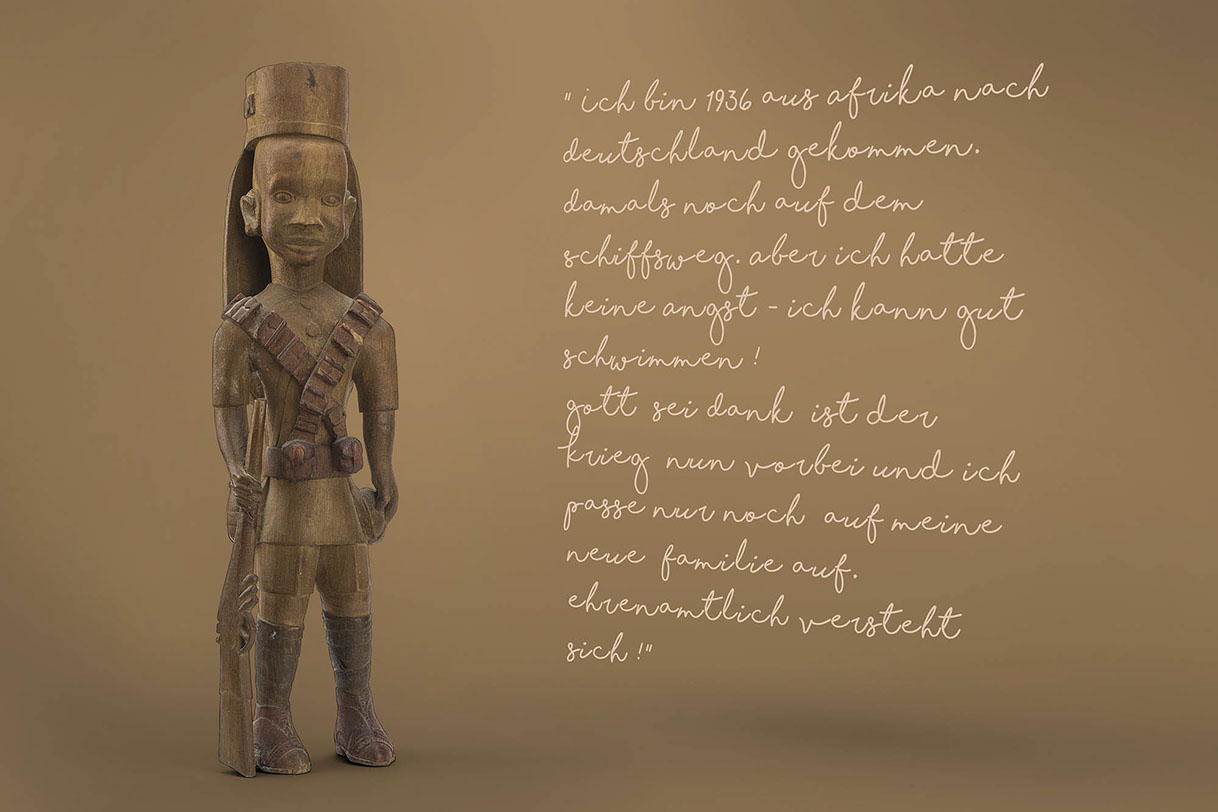 " ich bin 1936 aus afrika nach
deutschland gekommen.
damals noch auf dem
schiffsweg. aber ich hatte
keine angst - ich kann gut
schwimmen !
gott sei dank ist der
krieg nun vorbei und ich
passe nur noch auf meine
neue familie auf.
ehrenamtlich versteht
sich !"